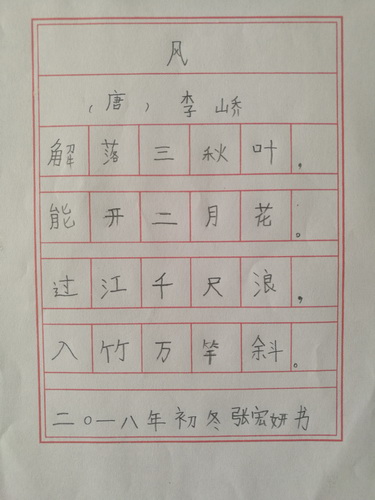 风
（唐）李峤
解落三秋叶，
能开二月花。
过江千尺浪，
入竹万竿斜。
二〇一八年初冬张宏妍书